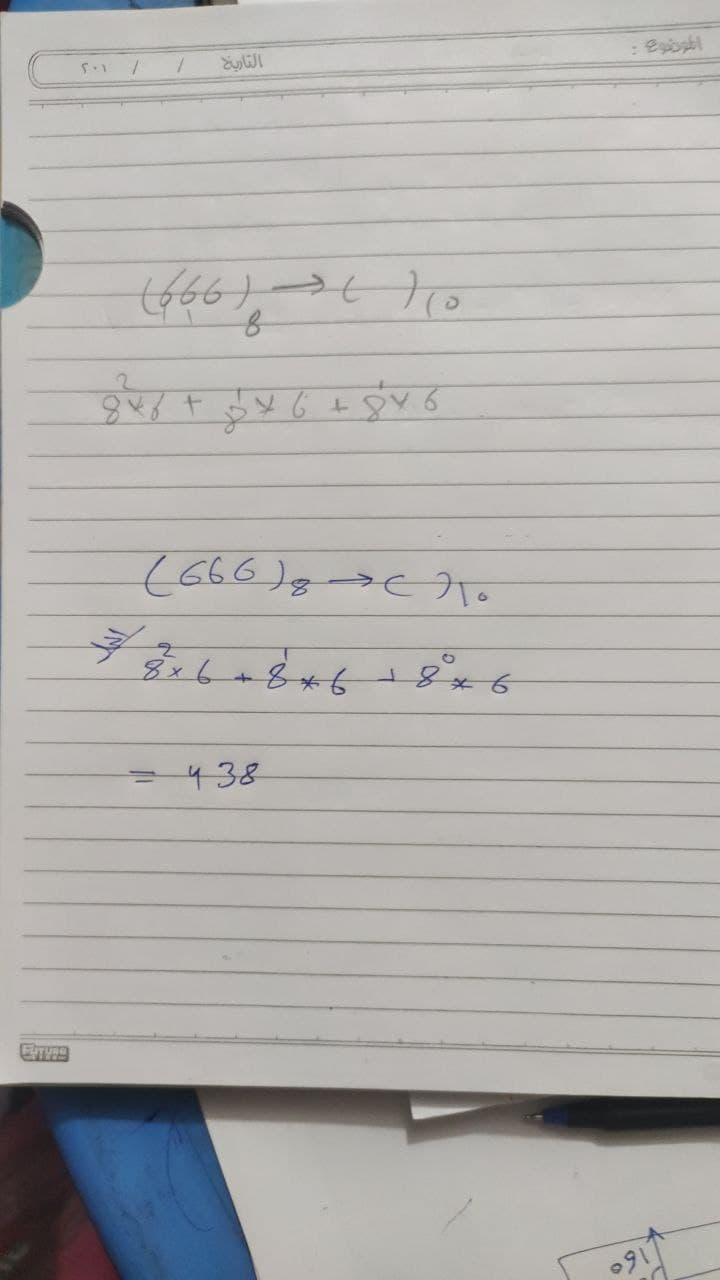 الموضوع :
التاريخ / / ٢٠١
(666)₈ → ( )₁₀
8²×6 + 8¹×6 + 8¹×6
(666)₈ → ( )₁₀
8²×6 + 8¹×6 + 8⁰×6
= 438
FUTURE
160